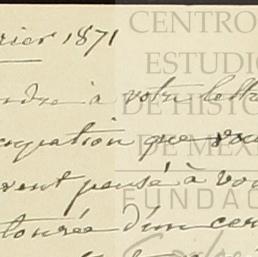 rier 1871
ndre à votre lettre
cupation que vous
vent pensé à vou
tourée d'un cer
CENTRO
ESTUDI
DE HISTO
DE MEX
FUNDAC